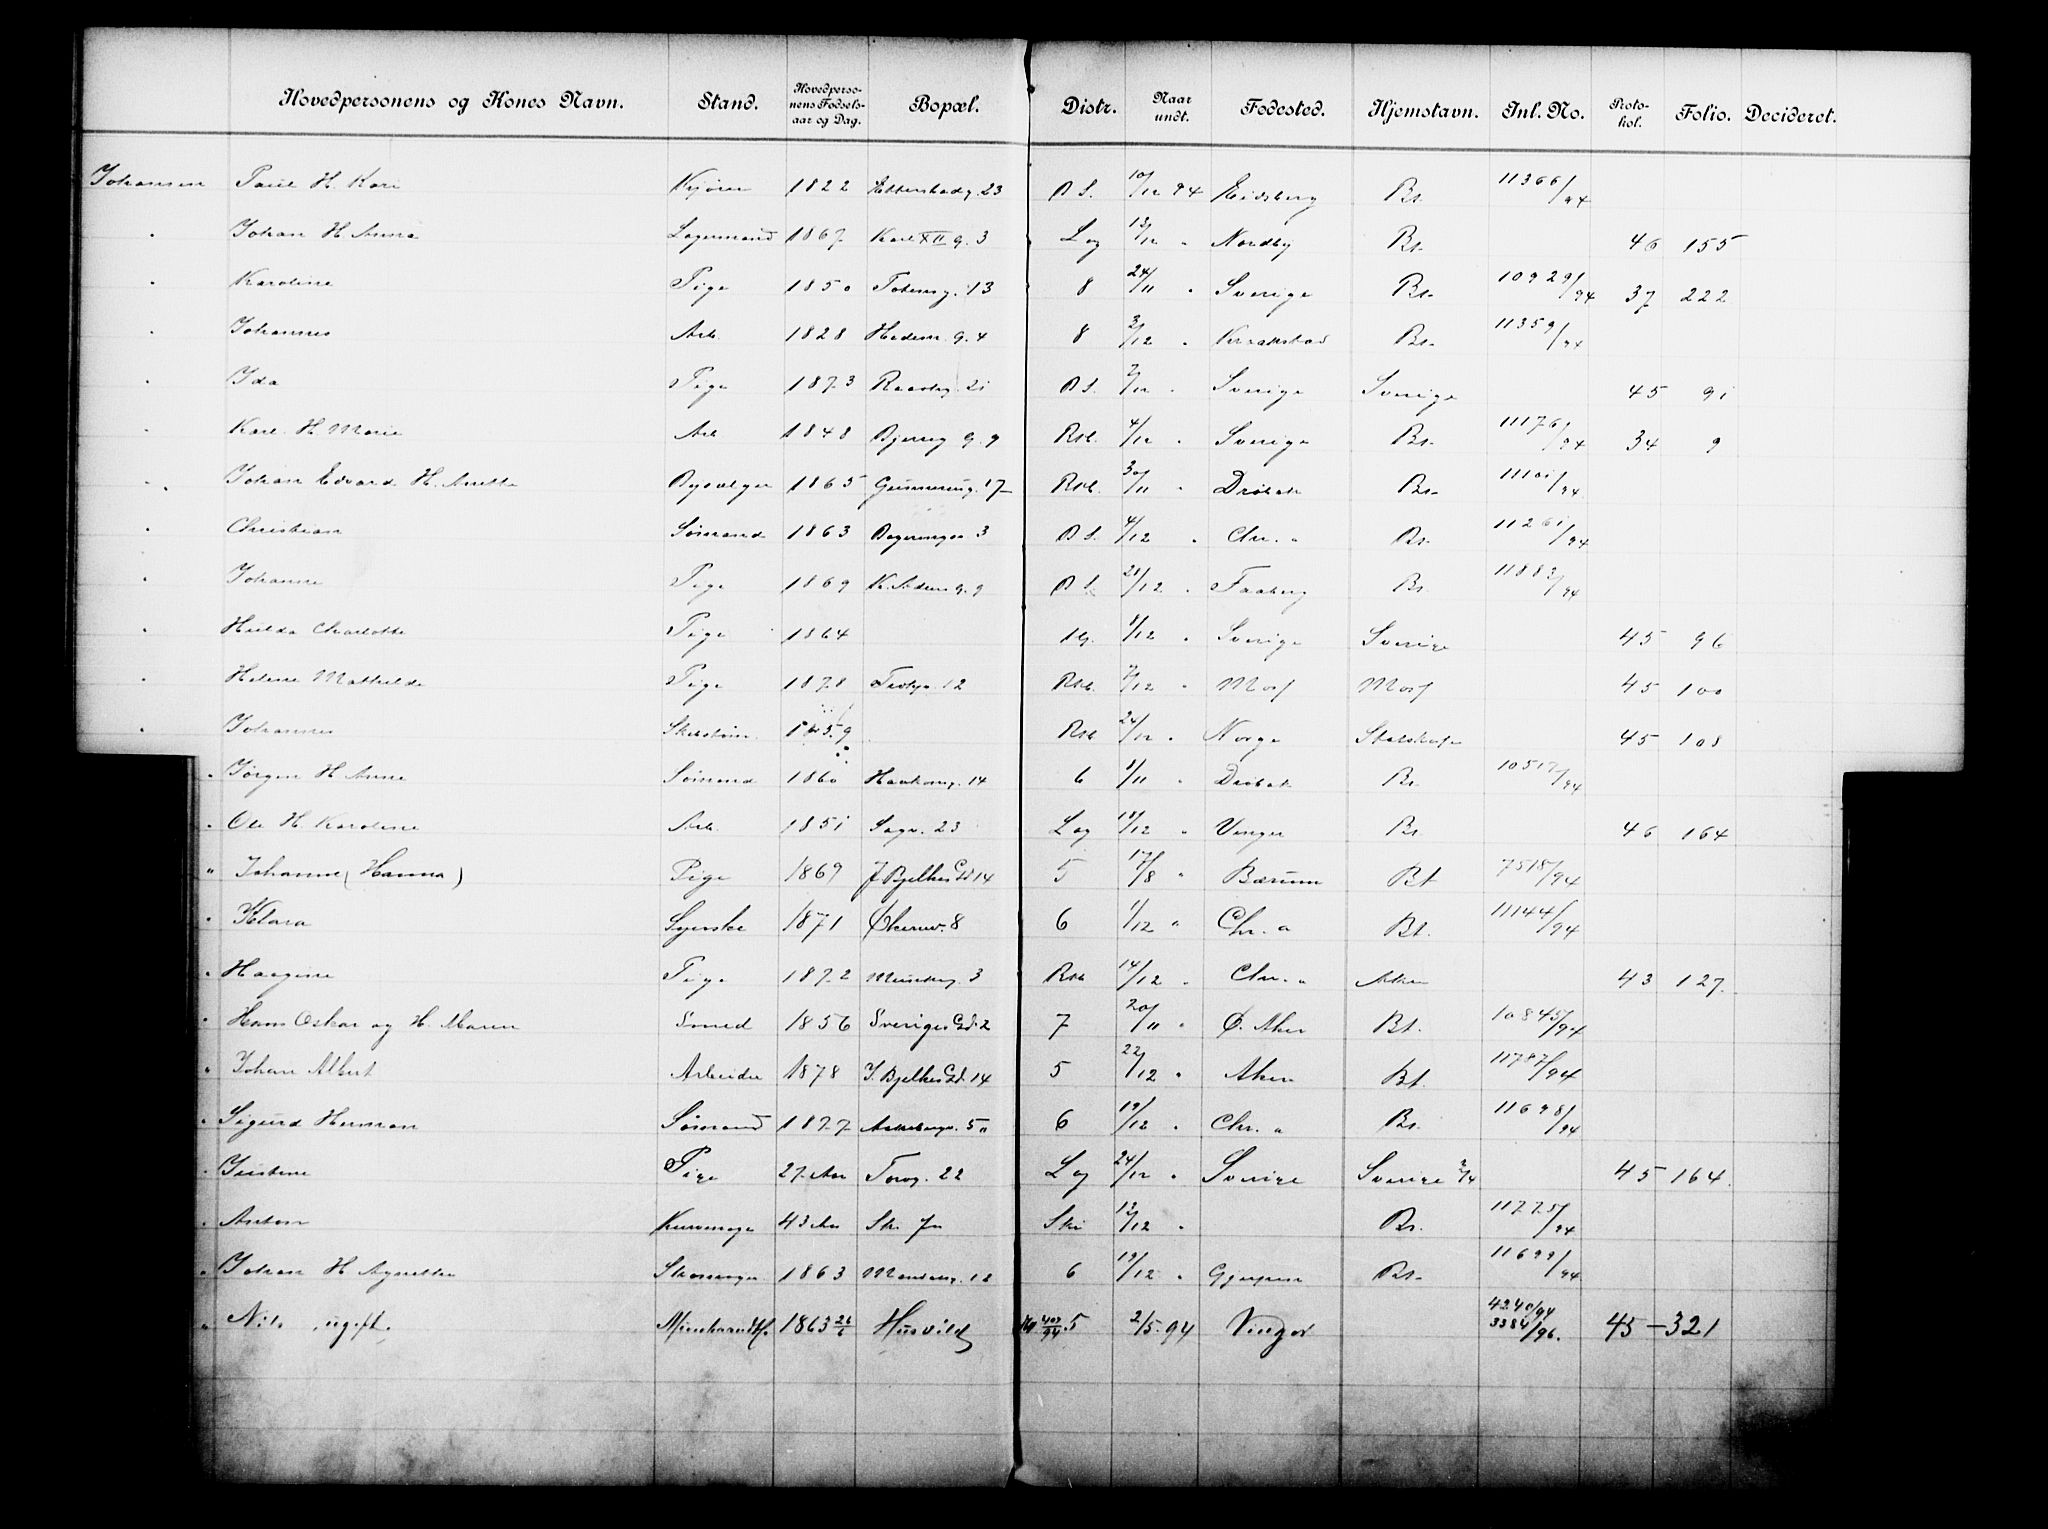 Hovedpersonens og Kones Navn. Stand. Hovedpersonens Fødselsaar og Dag. Bopæl. Distr. Naar undt. Fødested. Hjemstavn. Inl. No. Protokol. Folio. Decideret.
Johansen Paul H. Kari Kjører 1822 23 B S. 10/12 94 Eidsberg Bt. 11366/94
" Johan H. Anna Lagermand 1867 Karl XII g. 3 Log 12/12 " Nordby Bt. 46 155
" Karoline Pige 1850 13 8 24/11 " Sverige Bt. 10929/94 37 222
" Johannes Arb. 1828 Hedem. g. 4 8 3/12 " Kraakstad Bt. 11359/94
" Ida Pige 1873 21 B S. 2/12 " Sverige Sverige 45 91
" Karl H. Marie Arb 1848 g. 9 Rst. 4/12 " Sverige Bt. 11176/94 34 9
" Johan Edvard H. Anette 1865 17 Rst. 30/11 " Drøbak Bt. 11101/94
" Christian Sømand 1863 3 B S. 4/12 " Chr. a Bt. 11261/94
" Johanne Pige 1869 g. 9 B S. 28/12 " Faaberg Bt. 11883/94
" Hulda Charlotte Pige 1864 8/12 " Sverige Sverige 45 96
" Helene Mathilde Pige 1878 12 Rst. 7/12 " Moss Moss 45 100
" Johannes 1859 Rst 24/12 " Norge 45 108
" Jørgen H Anne Sømand 1860 14 6 1/11 " Drøbak Bt. 10517/94
" Ole H. Karoline Arb. 1851 Sagv. 23 Log 18/12 " Vinger Bt 46 164
" Johanne (Hanna) Pige 1869 J Bjelkes Gd 14 5 17/8 " Bærum Bt 7518/94
" Klara Syerske 1871 Økernv. 8 6 1/12 " Chr. a Bt. 11144/94
" Haagine Pige 1872 3 Rst 14/12 " Chr. a Aker 43 127.
" Hans Oskar og H. Maren Smed 1856 Sveriges Gd. 2 7 20/11 " Ø. Aker Bt. 10845/94
" Johan Albert Arbeider 1878 J. Bjelkes Gd. 14 5 22/12 " Aker Bt. 11787/94
" Sigurd Herman Sømand 1877 6 19/12 " Chr. a Bt. 11698/94
" Pige 27 Aar Torvg. 22 Log 24/12 " Sverige Sverige 45 164.
" Anton Kurvmager 43 Aar Ski 12/12 " Bt. 11775/94
" Johan H Agnethe Skomager 1863 12 6 19/12 " Gjerpen Bt. 11699/94
" Nils , ugift. 1863 26/6 Husvild 407/94 5 2/5. 94 Vinger 4240/94 3384/96. 45 – 321